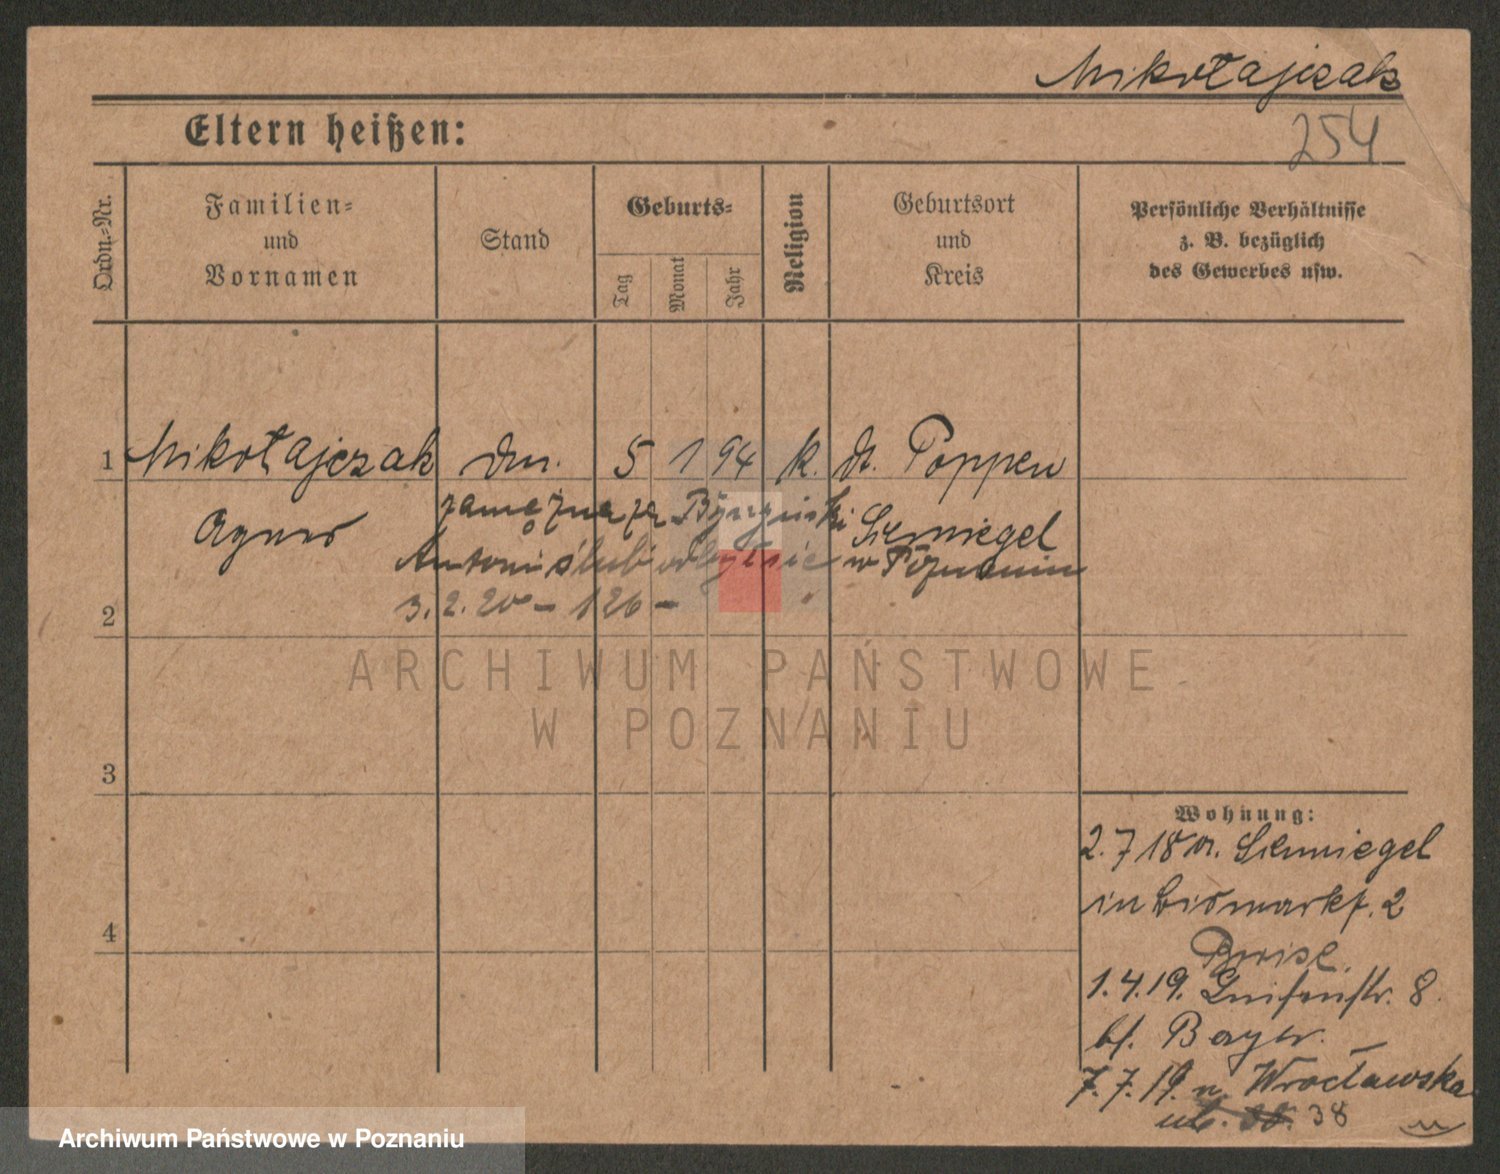 Mikołajczak
254
Eltern heißen:
Ordn.-Nr.
Familien-
und
Vornamen
Stand
Geburts-
Tag
Monat
Jahr
Religion
Geburtsort
und
Kreis
Persönliche Verhältnisse
z. B. bezüglich
des Gewerbes usw.
1 Mikołajczak 5 1 94 k. Poppen
Agnes zamężna za
Schmiegel
Antoni ślub odbył sie w Poznaniu
2 3.2.20 – 126 –
ARCHIWUM PAŃSTWOWE
W POZNANIU
3
4
Wohnung:
2.7 18 Schmiegel
in Bismarkst. 2
1.4.19. Gneisenaustr. 8.
bei Bayer.
7.7.19. Wrocławska
38
Archiwum Państwowe w Poznaniu